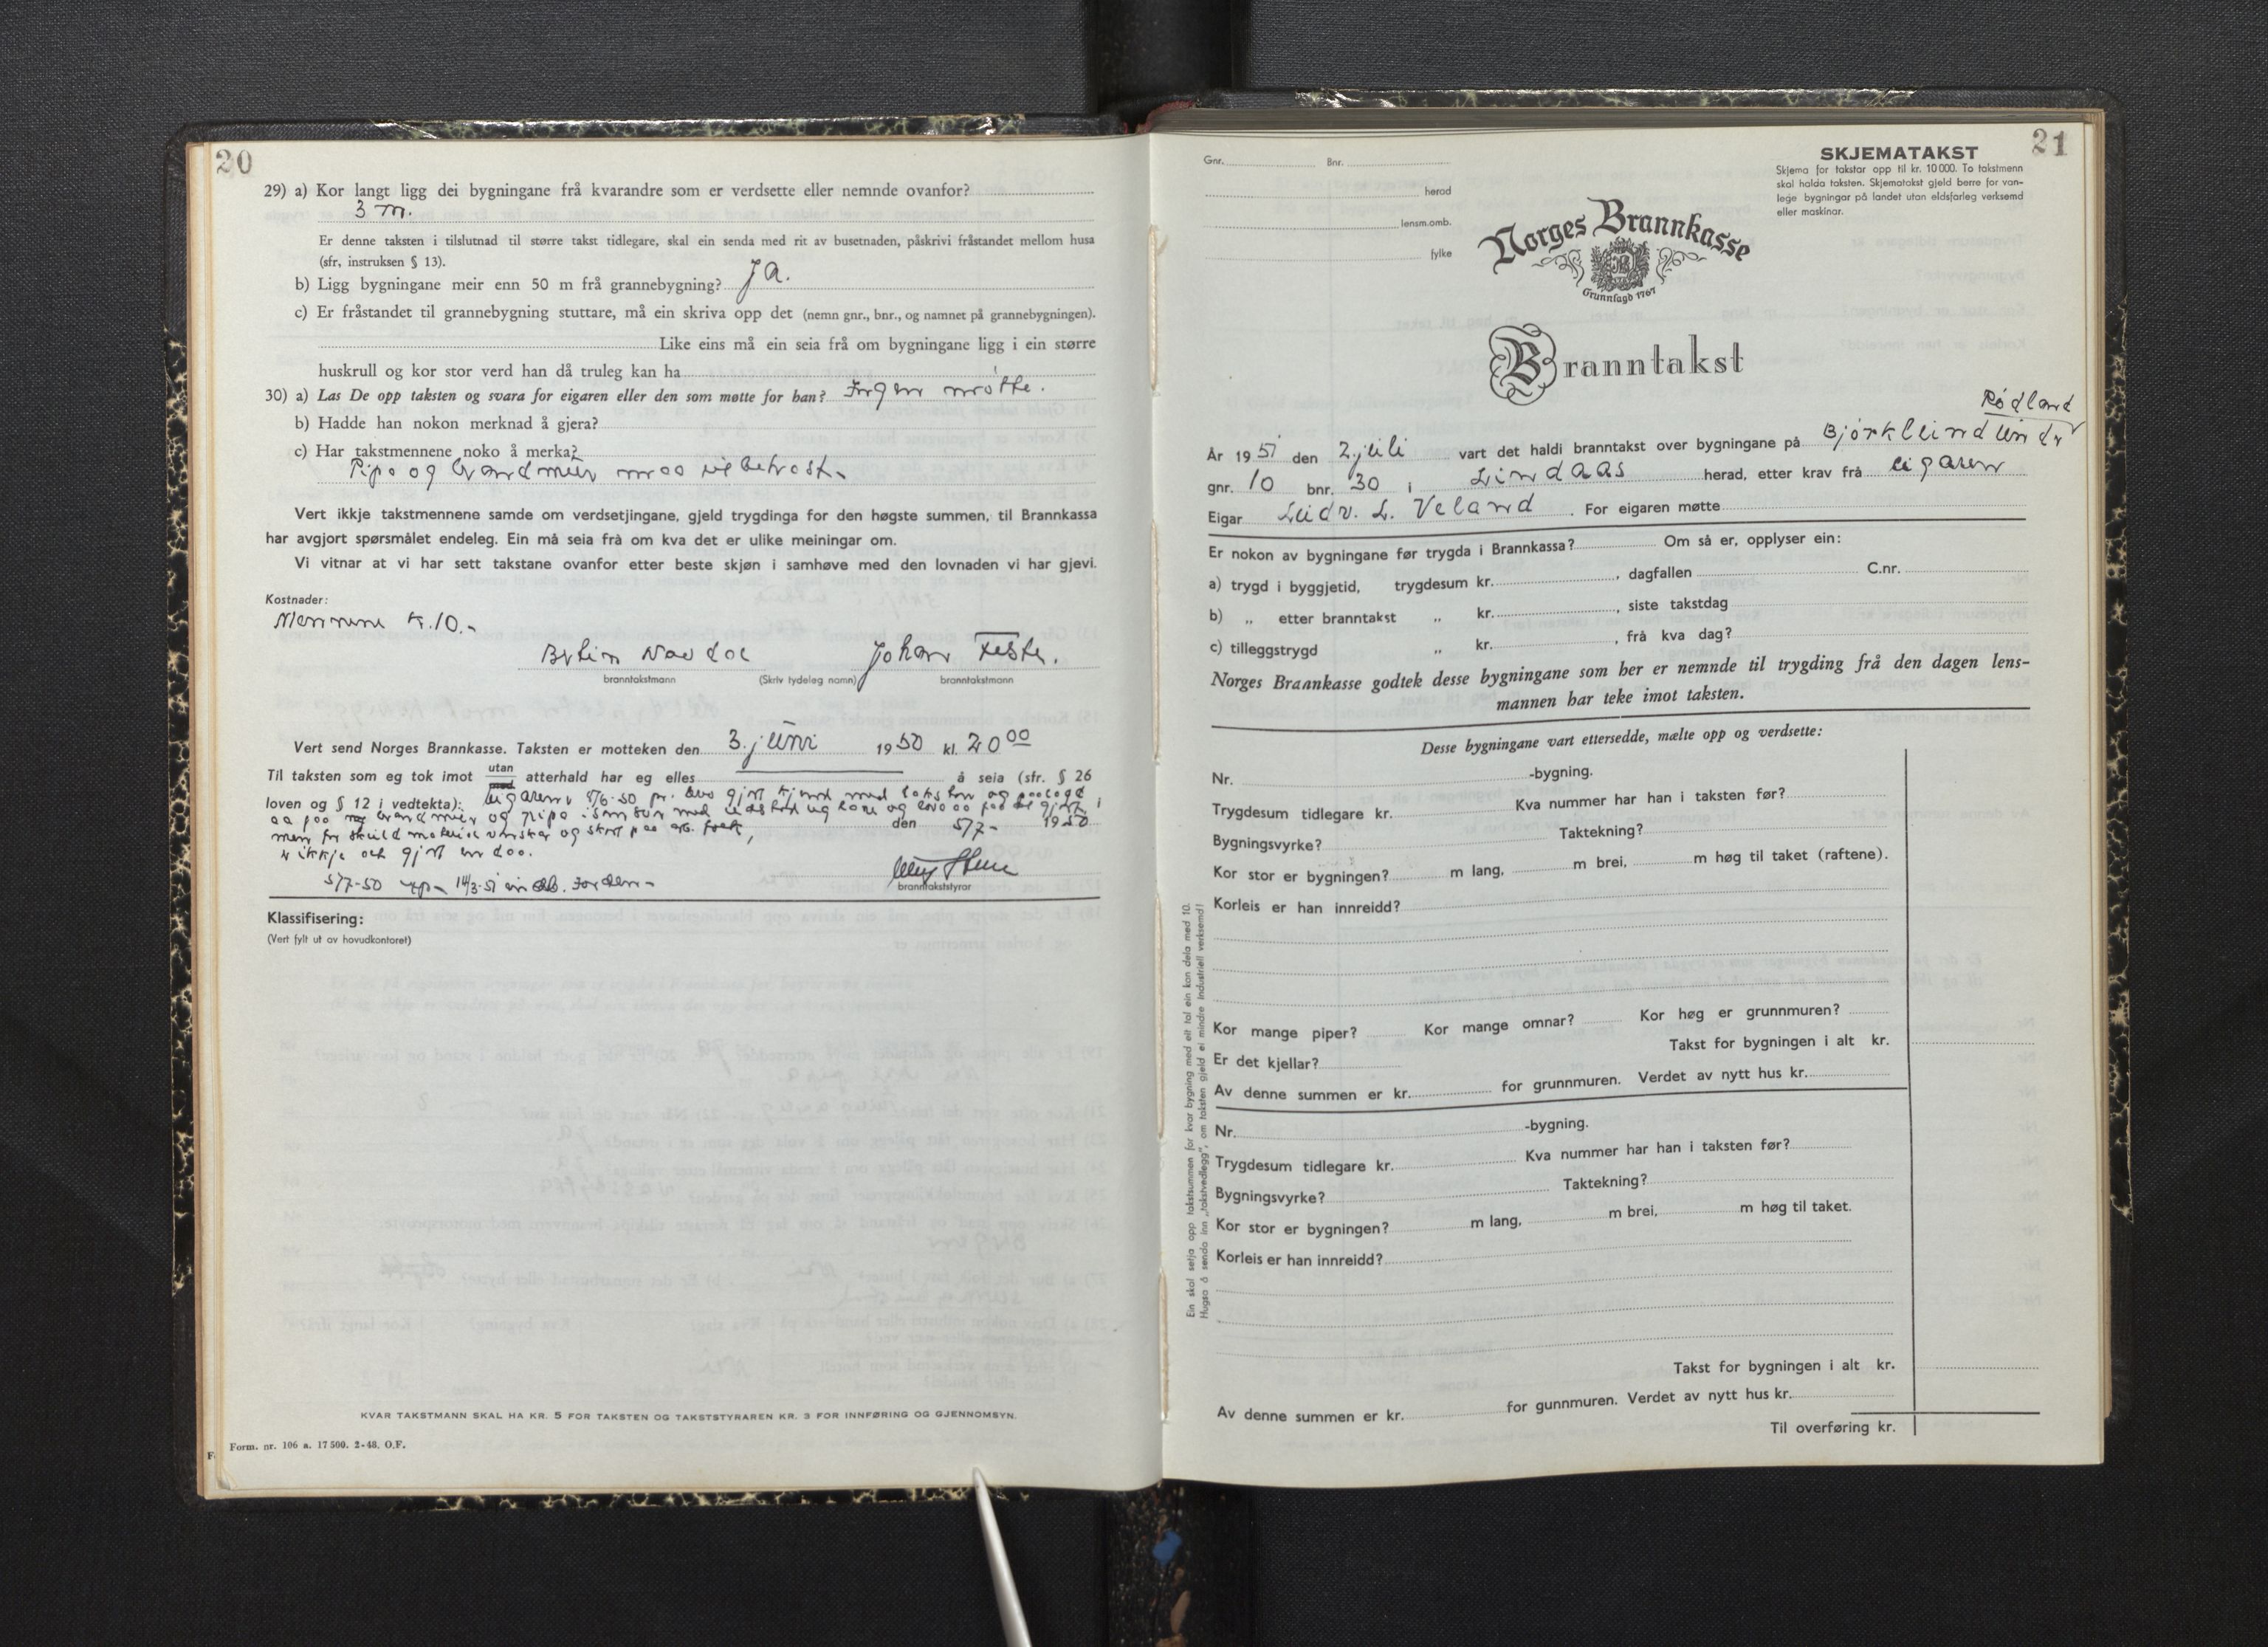 20
29) a) Kor langt ligg dei bygningane frå kvarandre som er verdsette eller nemnde ovanfor?
3 m.
Er denne taksten i tilslutnad til større takst tidlegare, skal ein senda med rit av busetnaden, påskrivi fråstandet mellom husa
(sfr, instruksen § 13).
b) Ligg bygningane meir enn 50 m frå grannebygning? Ja.
c) Er fråstandet til grannebygning stuttare, må ein skriva opp det (nemn gnr., bnr., og namnet på grannebygningen).
Like eins må ein seia frå om bygningane ligg i ein større
huskrull og kor stor verd han då truleg kan ha
30) a) Las De opp taksten og svara for eigaren eller den som møtte for han? Ingen møtte.
b) Hadde han nokon merknad å gjera?
c) Har takstmennene noko å merka?
Pipo og brandmur maa utbetrast.
Vert ikkje takstmennene samde om verdsetjingane, gjeld trygdinga for den høgste summen, til Brannkassa
har avgjort spørsmålet endeleg. Ein må seia frå om kva det er ulike meiningar om.
Vi vitnar at vi har sett takstane ovanfor etter beste skjøn i samhøve med den lovnaden vi har gjevi.
Kostnader:
Mennene k. 10.-
Johan Feste.
branntakstmann (Skriv tydeleg namn) branntakstmann
Vert send Norges Brannkasse. Taksten er motteken den 3. juni 1950 kl. 20 00
Til taksten som eg tok imot utan atterhald har eg elles å seia (sfr. § 26
loven og § 12 i vedtekta): Eigaren 5/6-50 gjort kjend med taksten og paalagd
aa brandmur og pipo i
men for og paa
den 5/7- 1950
er ikkje gjort
5/7-50 14/3-51
branntakststyrar
Klassifisering:
(Vert fylt ut av hovudkontoret)
KVAR TAKSTMANN SKAL HA KR. 5 FOR TAKSTEN OG TAKSTSTYRAREN KR. 3 FOR INNFØRING OG GJENNOMSYN.
Form. nr. 106 a. 17 500. 2-48. O.F.
21
Gnr. Bnr.
herad
lensm.omb.
fylke
SKJEMATAKST
Skjema for takstar opp til kr. 10 000. To takstmenn
skal halda taksten. Skjematakst gjeld berre for van-
lege bygningar på landet utan eldsfarleg verksemd
eller maskinar.
Norges Brannkasse
Grunnlagd 1767
Branntakst
Rødland
År 1951 den 2. juli vart det haldi branntakst over bygningane på Bjørklund under
gnr. 10 bnr. 30 i Lindaas herad, etter krav frå eigaren
Eigar Leidv. L. Veland. For eigaren møtte
Er nokon av bygningane før trygda i Brannkassa? Om så er, opplyser ein:
a) trygd i byggjetid, trygdesum kr. , dagfallen C.nr.
b) „ etter branntakst „ kr. , siste takstdag
c) tilleggstrygd „ kr. , frå kva dag?
Norges Brannkasse godtek desse bygningane som her er nemnde til trygding frå den dagen lens-
mannen har teke imot taksten.
Desse bygningane vart ettersedde, mælte opp og verdsette:
Nr. -bygning.
Trygdesum tidlegare kr. Kva nummer har han i taksten før?
Bygningsvyrke? Taktekning?
Kor stor er bygningen? m lang, m brei, m høg til taket (raftene).
Korleis er han innreidd?
Kor mange piper? Kor mange omnar? Kor høg er grunnmuren?
Er det kjellar? Takst for bygningen i alt kr.
Av denne summen er kr. for grunnmuren. Verdet av nytt hus kr.
Nr. -bygning.
Trygdesum tidlegare kr. Kva nummer har han i taksten før?
Bygningsvyrke? Taktekning?
Kor stor er bygningen? m lang, m brei, m høg til taket.
Korleis er han innreidd?
Takst for bygningen i alt kr.
Av denne summen er kr. for gunnmuren. Verdet av nytt hus kr.
Til overføring kr.
Ein skal setja opp takstsummen for kvar bygning med eit tal ein kan dela med 10.
Hugsa å senda inn „takstvedlegg“, om taksten gjeld ei mindre industriell verksemd!